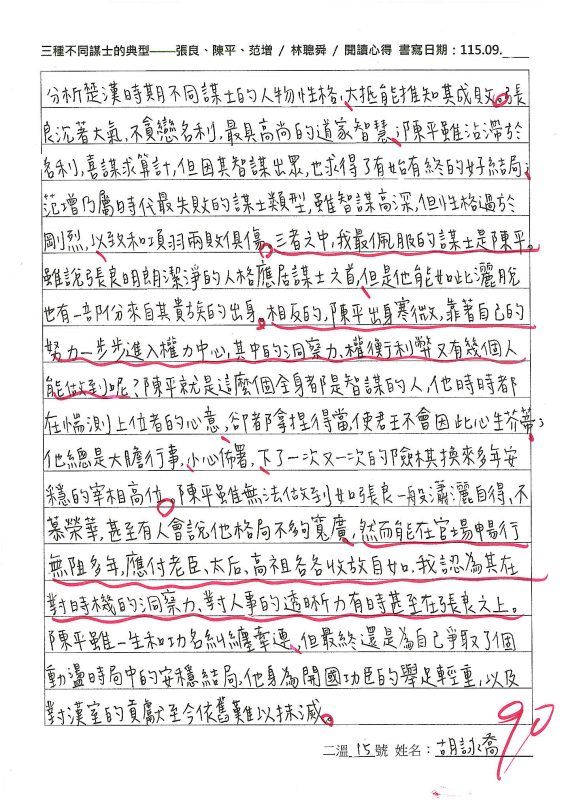 三種不同謀士的典型——張良、陳平、范增 / 林聰舜 / 閱讀心得 書寫日期：115.09.____
分析楚漢時期不同謀士的人物性格，大抵能推知其成敗。張
良沉著大氣，不貪戀名利，最具高尚的道家智慧；陳平雖沾滯於
名利，喜謀求算計，但因其智謀出眾，也求得了有始有終的好結局；
范增乃屬時代最失敗的謀士類型，雖智謀高深，但性格過於
剛烈，以致和項羽兩敗俱傷。三者之中，我最佩服的謀士是陳平。
雖說張良明朗潔淨的人格應居謀士之首，但是他能如此灑脫
也有一部份來自其貴族的出身。相反的，陳平出身寒微，靠著自己的
努力一步步進入權力中心，其中的洞察力、權衡利弊又有幾個人
能做到呢？陳平就是這麼個全身都是智謀的人，他時時都
在惴測上位者的心意，卻都拿捏得當，使君王不會因此心生芥蒂；
他總是大膽行事，小心佈署，下了一次又一次的險棋換來多年安
穩的宰相高位。陳平雖無法做到如張良一般瀟灑自得、不
慕榮華，甚至有人會說他格局不夠寬廣，然而能在官場暢行
無阻多年，應付老臣、太后、高祖各各收放自如，我認為其在
對時機的洞察力、對人事的透晰力有時甚至在張良之上。
陳平雖一生和功名糾纏牽連，但最終還是為自己爭取了個
動盪時局中的安穩結局，他身為開國功臣的舉足輕重，以及
對漢室的貢獻至今依舊難以抹滅。
90
二溫 15 號 姓名：胡詠喬